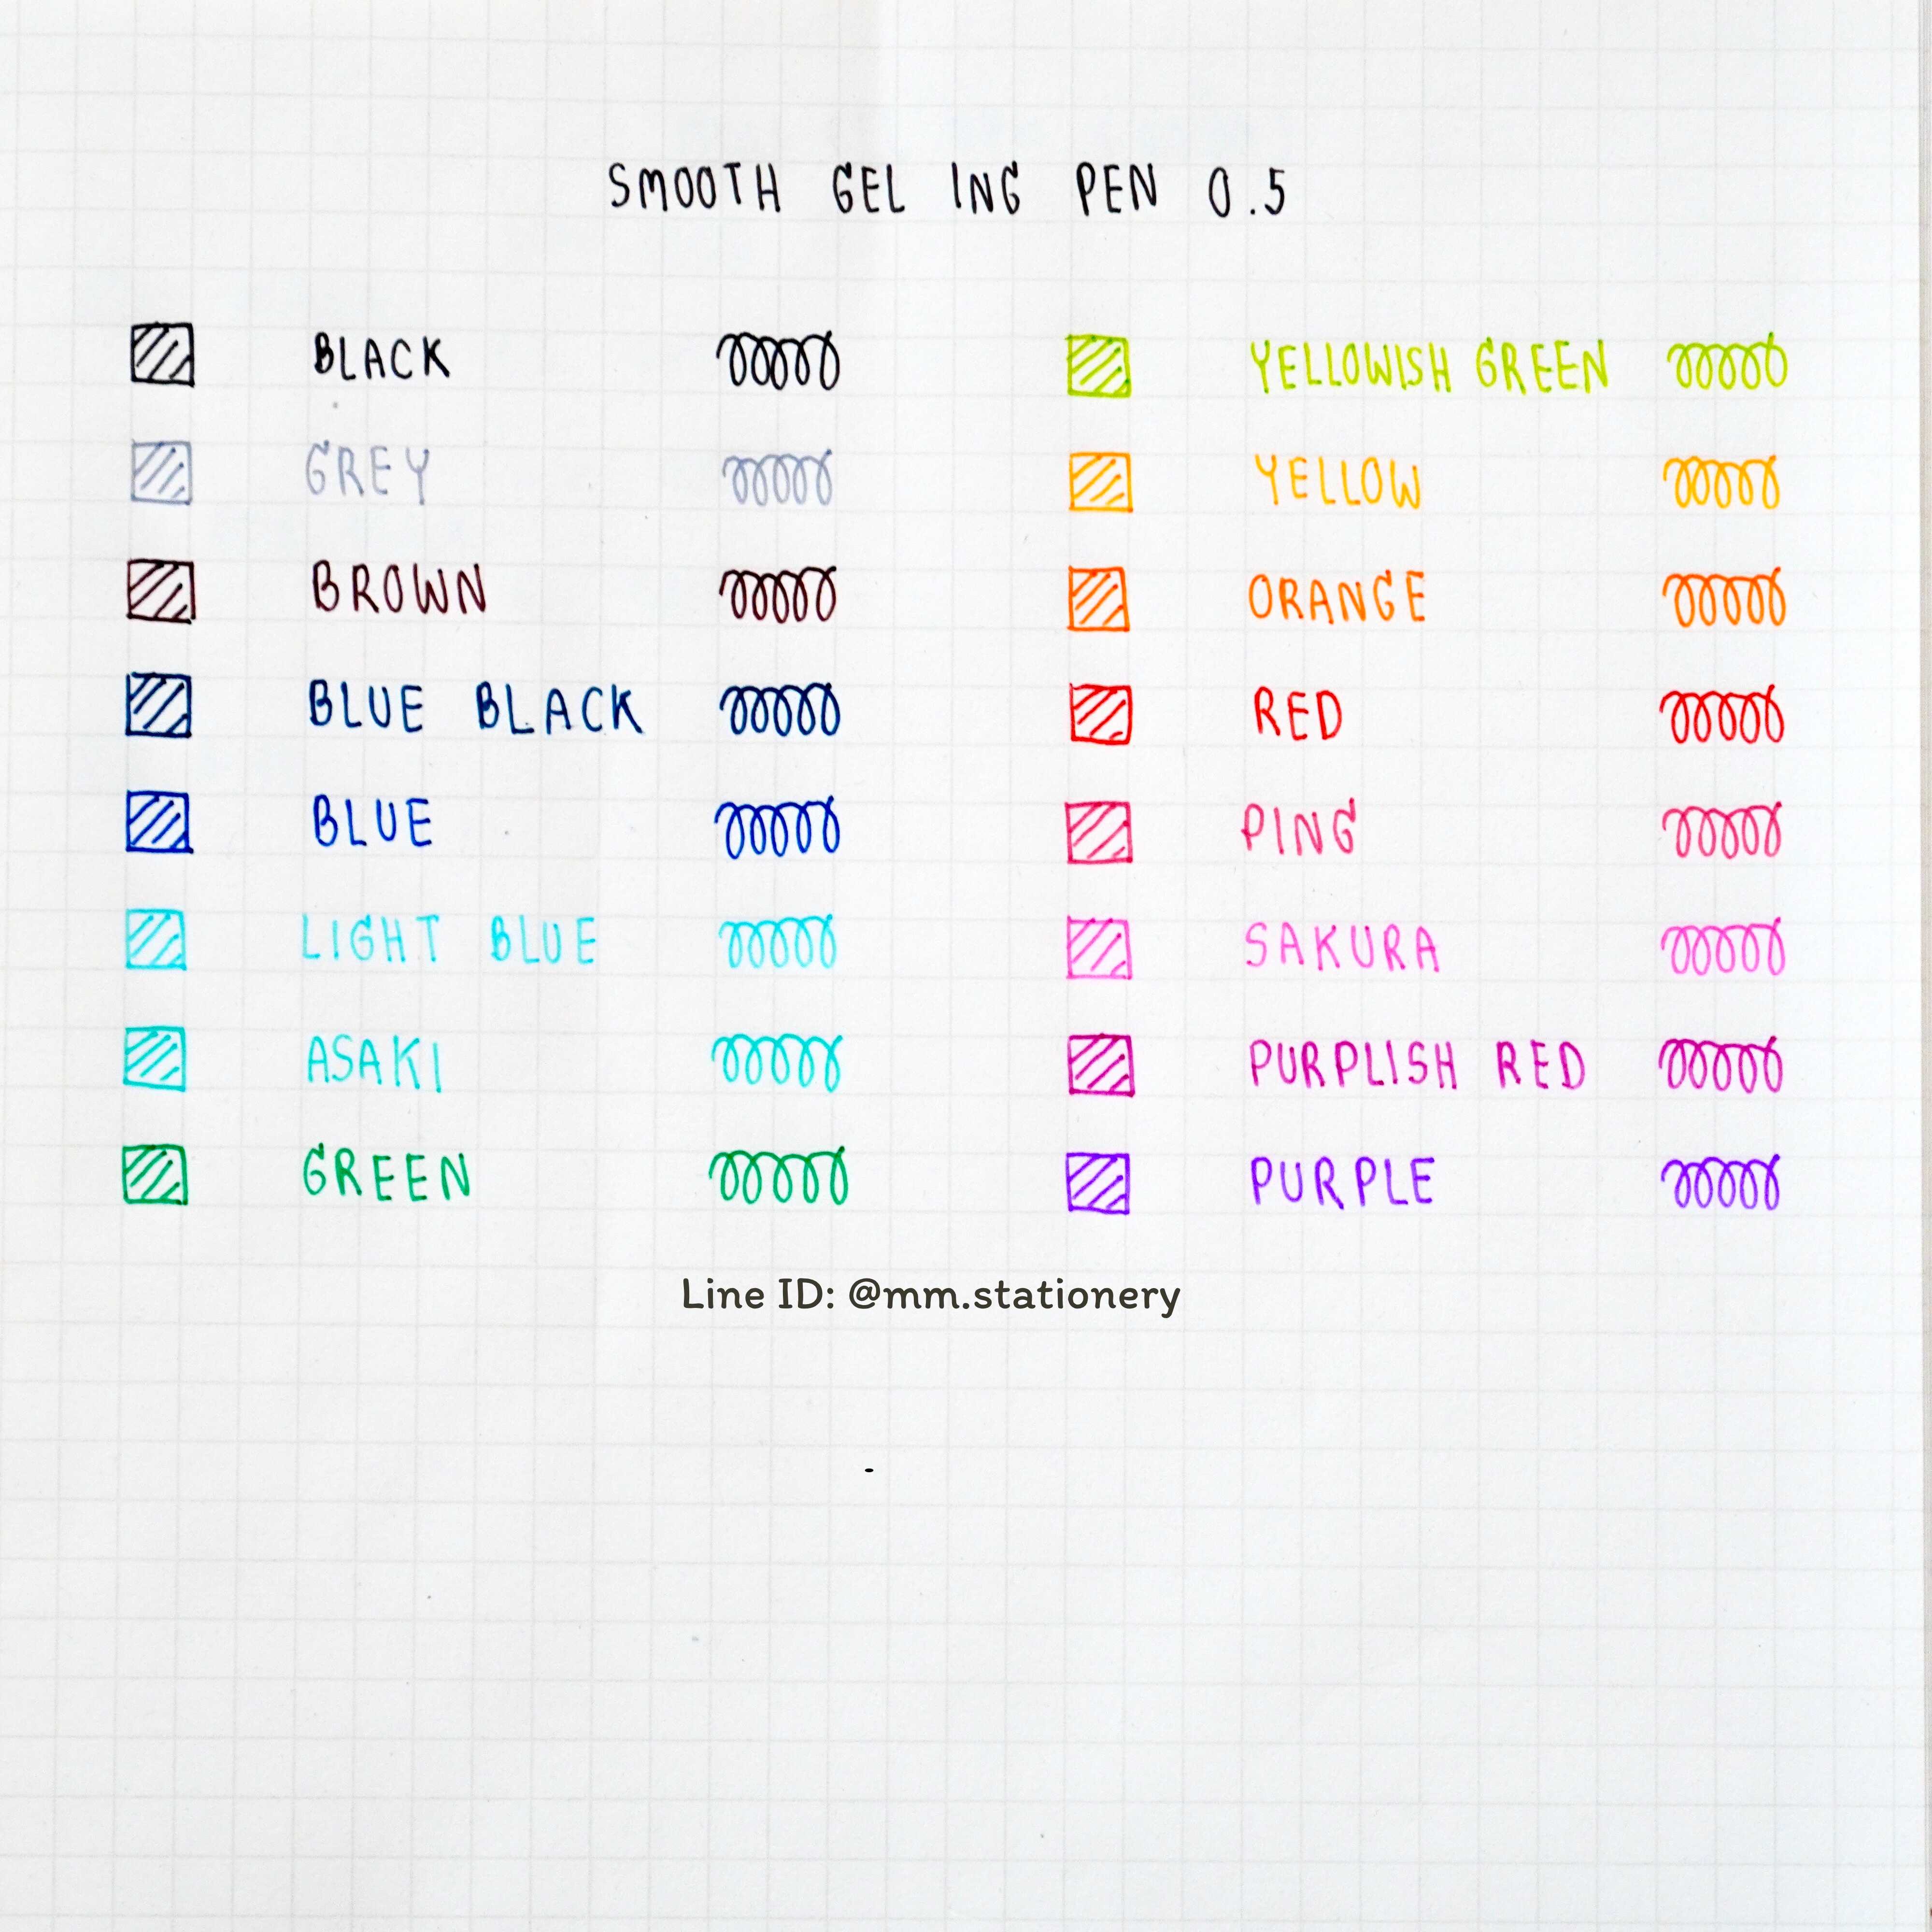 SMOOTH GEL ING PEN 0.5
BLACK
GREY
BROWN
BLUE BLACK
BLUE
LIGHT BLUE
ASAKI
GREEN
YELLOWISH GREEN
YELLOW
ORANGE
RED
PING
SAKURA
PURPLISH RED
PURPLE
Line ID: @mm.stationery
-